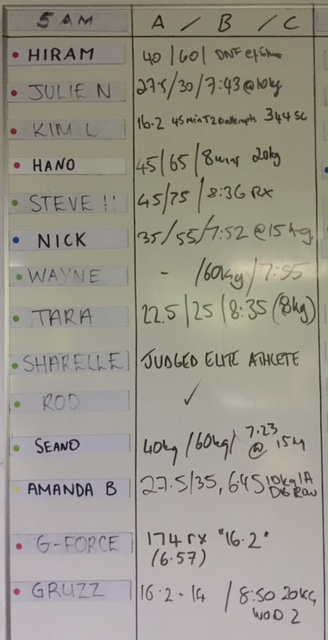 5 AM A / B / C
HIRAM 40 / 60 / DNF
JULIE N 27.5 / 30 / 7:43 @ 10kg
KIM L 16.2 45min T2 344 SC
HANO 45 / 65 / 8 20kg
STEVE !! 45 / 75 / 8:36 RX
NICK 35 / 55 / 7:52 @ 15kg
WAYNE - / 60kg / 7:55
TARA 22.5 / 25 / 8:35 (8kg)
SHARELLE JUDGED ELITE ATHLETE
ROD ✓
SEANO 40kg / 60kg / 7.23 @ 15kg
AMANDA B 27.5 / 35, 6:45 10kg / A
Row
G-FORCE 174 rx "16.2"
(6.57)
GRUZZ 16.2 - 14 / 8:50 20kg
WOD 2